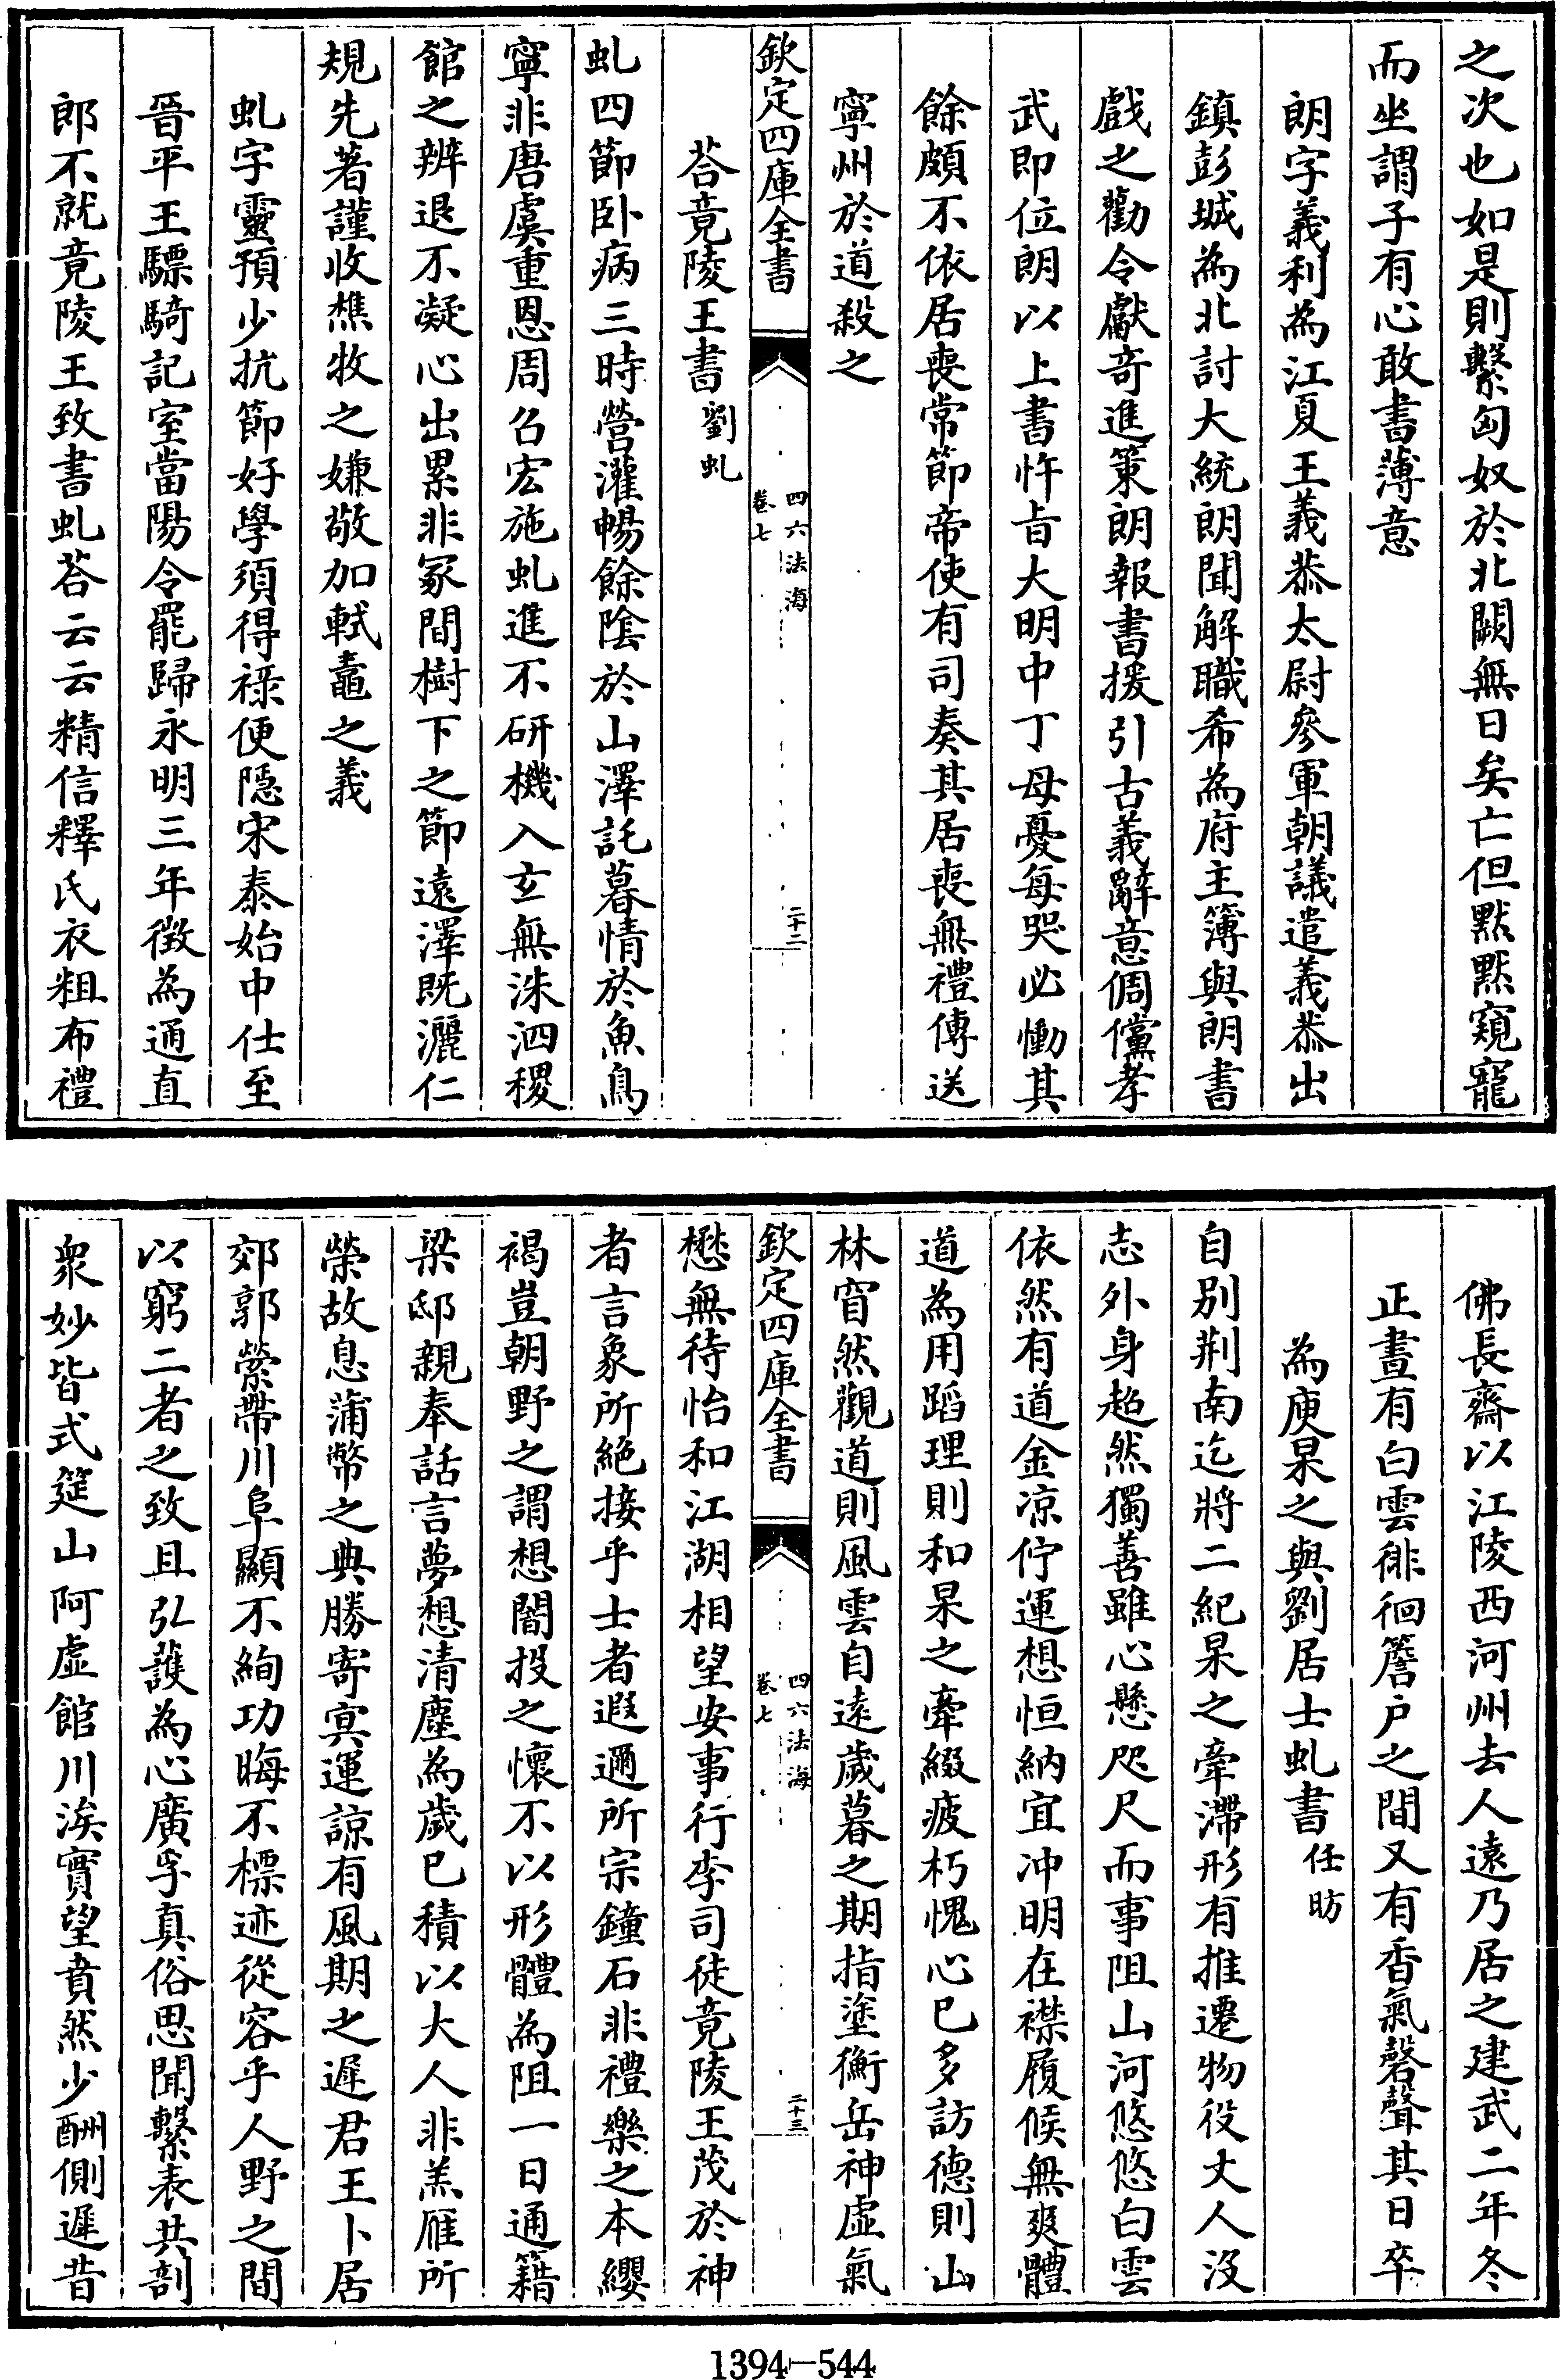 之次也如是則繫匈奴於北闕無日矣亡但默默窺寵
而坐謂子有心敢書薄意
朗字義利為江夏王義恭太尉參軍朝議遣義恭出
鎮彭城為北討大統朗聞解職希為府主簿與朗書
戲之勸令獻奇進策朗報書援引古義辭意倜儻孝
武即位朗以上書忤旨大明中丁母憂每哭必慟其
餘頗不依居喪常節帝使有司奏其居喪無禮傳送
寧州於道殺之
欽定四庫全書
四六法海
卷七
二十二
荅竟陵王書劉虬
虬四節卧病三時營灌暢餘陰於山澤託暮情於魚鳥
寧非唐虞重恩周召宏施虬進不研機入玄無洙泗稷
館之辨退不凝心出累非冢間樹下之節遠澤既灑仁
規先著謹收樵牧之嫌敬加軾鼃之義
虬字靈預少抗節好學須得祿便隱宋泰始中仕至
晉平王驃騎記室當陽令罷歸永明三年徴為通直
郎不就竟陵王致書虬荅云云精信釋氏衣粗布禮
佛長齋以江陵西河州去人遠乃居之建武二年冬
正晝有白雲徘徊簷户之間又有香氣磬聲其日卒
為庾杲之與劉居士虬書任昉
自別荆南迄將二紀杲之牽滯形有推遷物役丈人沒
志外身超然獨善雖心懸咫尺而事阻山河悠悠白雲
依然有道金凉佇運想恒納宜冲明在襟履候無爽體
道為用蹈理則和杲之牽綴疲朽愧心已多訪德則山
林窅然觀道則風雲自遠歲暮之期指塗衡岳神虛氣
欽定四庫全書
四六法海
卷七
二十三
懋無待怡和江湖相望安事行李司徒竟陵王茂於神
者言象所絕接乎士者遐邇所宗鐘石非禮樂之本纓
褐豈朝野之謂想闇投之懷不以形體為阻一日通籍
梁邸親奉話言夢想清塵為歲已積以大人非羔雁所
榮故息蒲幣之典勝寄冥運諒有風期之遲君王卜居
郊郭縈帶川阜顯不絢功晦不標迹從容乎人野之間
以窮二者之致且弘護為心廣孚真俗思聞繫表共剖
衆妙皆式筵山阿虛館川涘實望賁然少酬側遲昔
1394-544